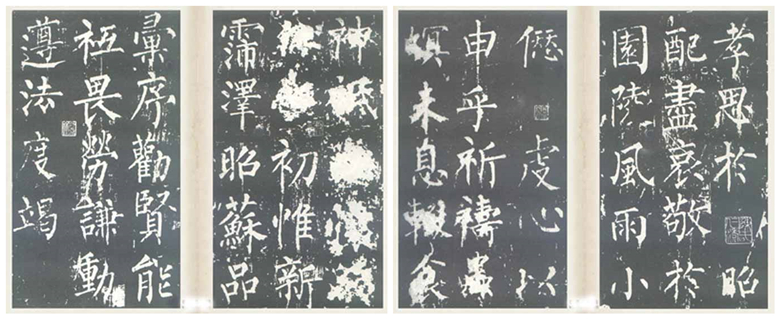 孝思於昭
配盡哀敬於
園陵風雨小
僁虔心以
申乎祈禱蟲
螟未息輟食
神祇
初惟新
霈澤昭蘇品
彙序勸賢能
祗畏勞謙動
遵法度竭